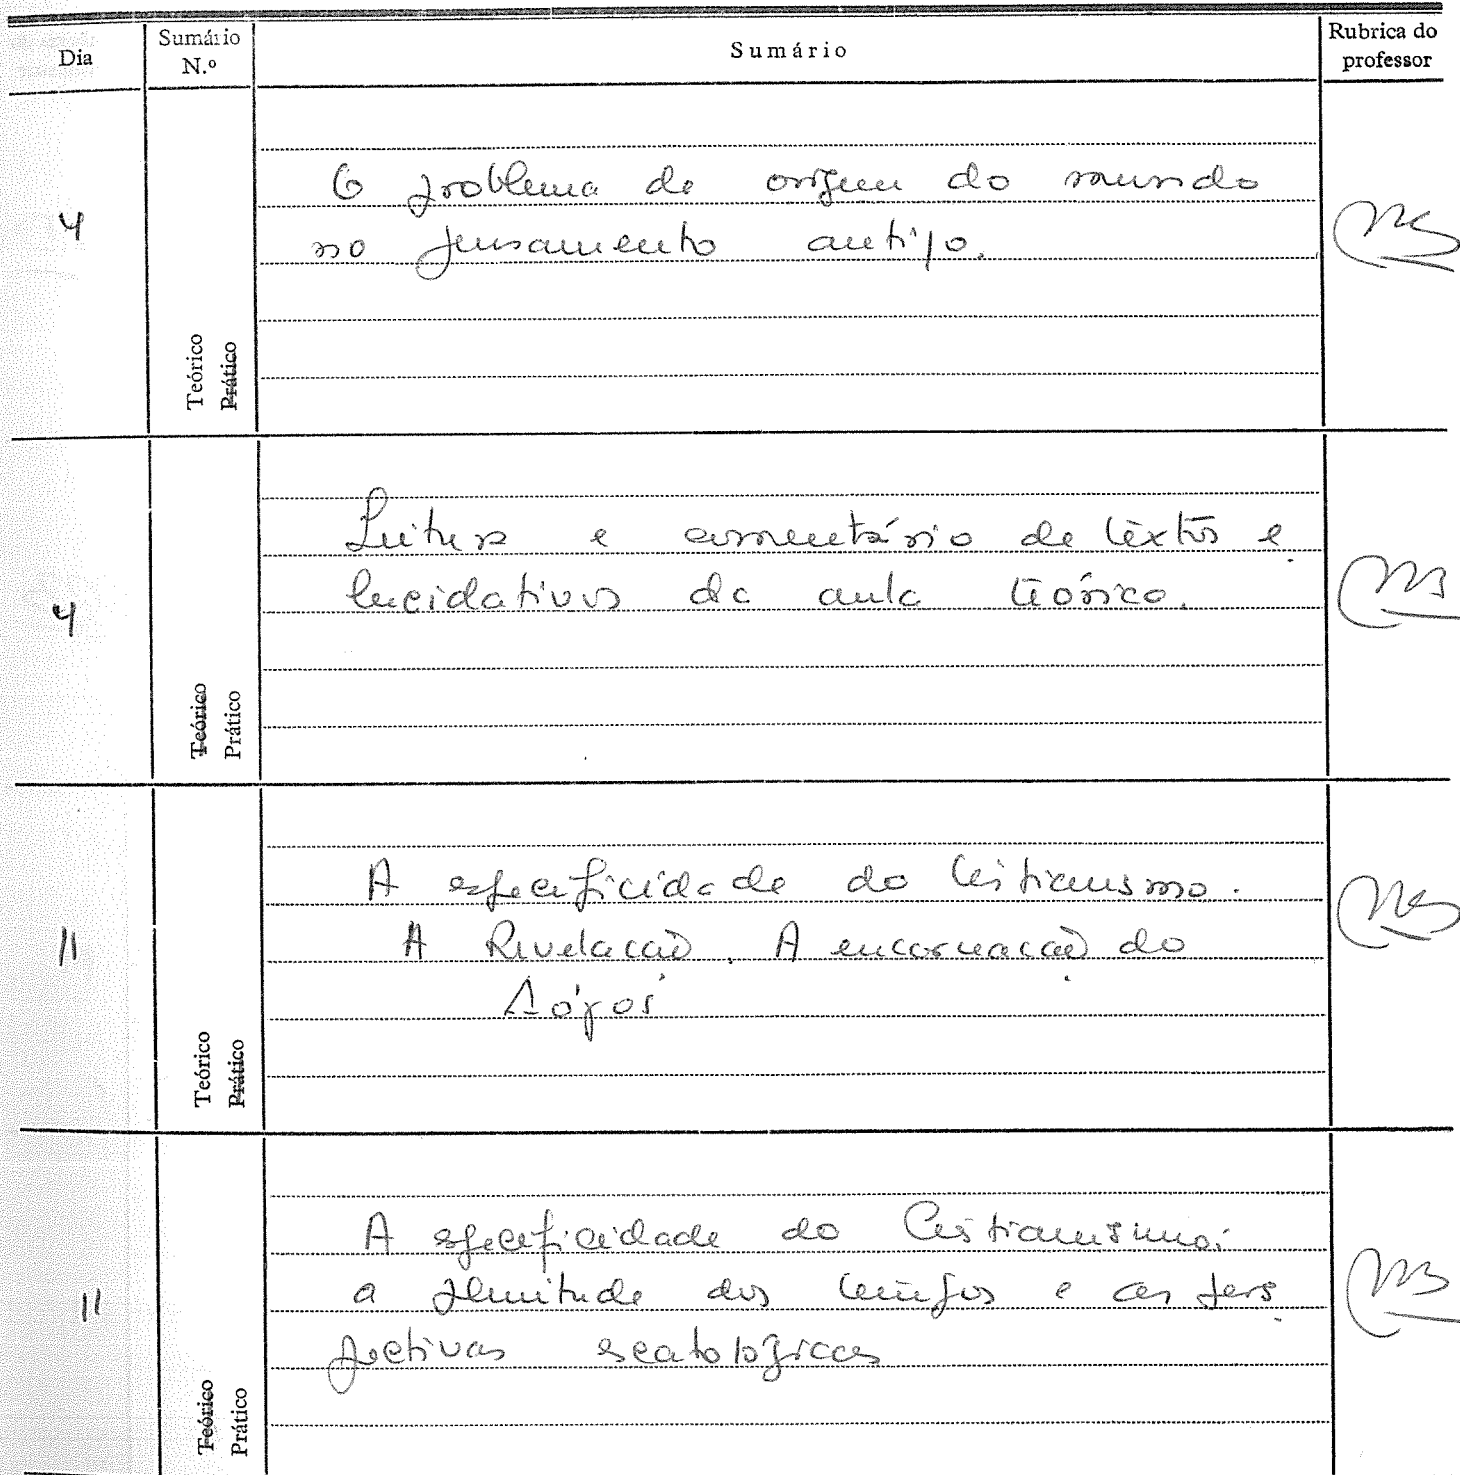 Dia
Sumário
N.º
Sumário
Rubrica do
professor
4
Teórico
Prático
O problema da origem do mundo
no pensamento antigo.
4
Teórico
Prático
Leitura e comentário de textos e
lucidativos da aula teórica.
11
Teórico
Prático
A especificidade do Cristianismo.
A Revelação. A encarnação do
Λόγος
11
Teórico
Prático
A especificidade do Cristianismo:
a plenitude dos tempos e as pers
pectivas escatológicas